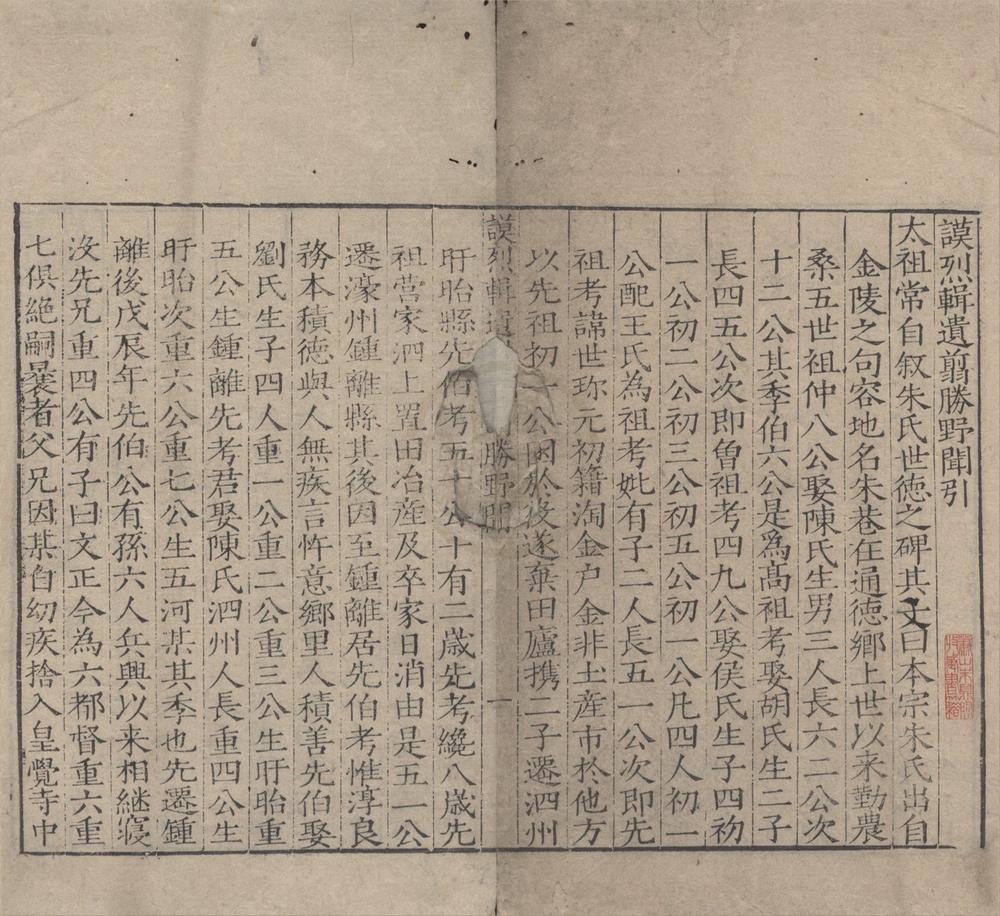 謨烈輯遺翦勝野聞引
太祖常自叙朱氏世德之碑其文曰本宗朱氏出自
金陵之句容地名朱巷在通德鄉上世以来勤農
桑五世祖仲八公娶陳氏生男三人長六二公次
十二公其季伯六公是爲髙祖考娶胡氏生二子
長四五公次即曽祖考四九公娶侯氏生子四初
一公初二公初三公初五公初一公凡四人初一
公配王氏為祖考妣有子二人長五一公次即先
祖考諱世珎元初籍淘金户金非土産市於他方
以先祖初一公困於役遂棄田廬携二子遷泗州
謨烈輯遺 勝野聞 一
盱眙縣先伯考五十公十有二歳先考纔八歳先
祖营家泗上置田治産及卒家日消由是五一公
遷濠州鍾離縣其後因至鍾離居先伯考惟淳良
務本積德與人無疾言忤意鄉里人積善先伯娶
劉氏生子四人重一公重二公重三公生盱眙重
五公生鍾離先考君娶陳氏泗州人長重四公生
盱眙次重六公重七公生五河某其季也先遷鍾
離後戊辰年先伯公有孫六人兵興以来相継寝
没先兄重四公有子曰文正今為六都督重六重
七俱絶嗣曩者父兄因某自幼疾捨入皇覺寺中